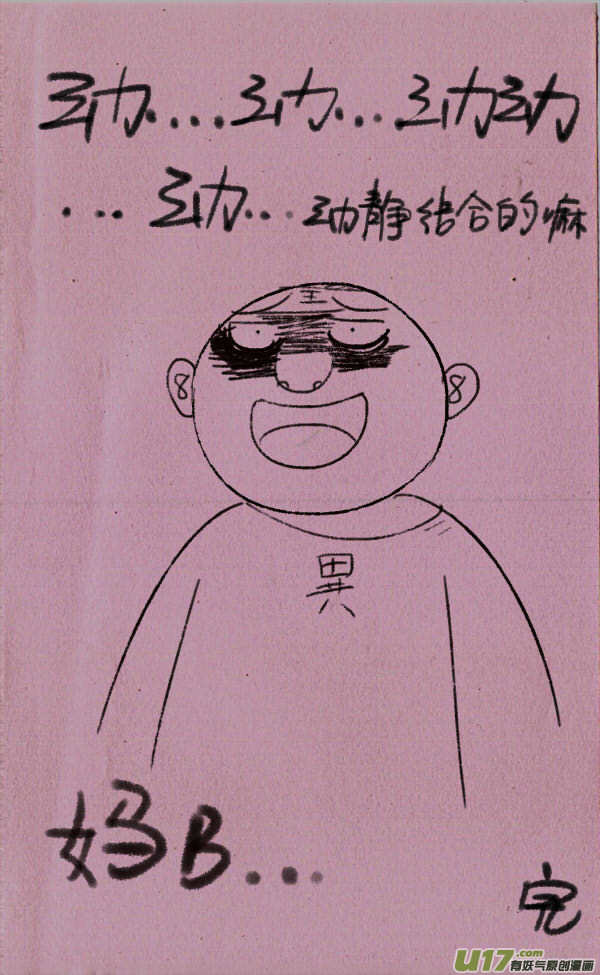 动...动...动动
...动...动静结合的嘛
王
異
妈B...
完
U17.com
有妖气原创漫画